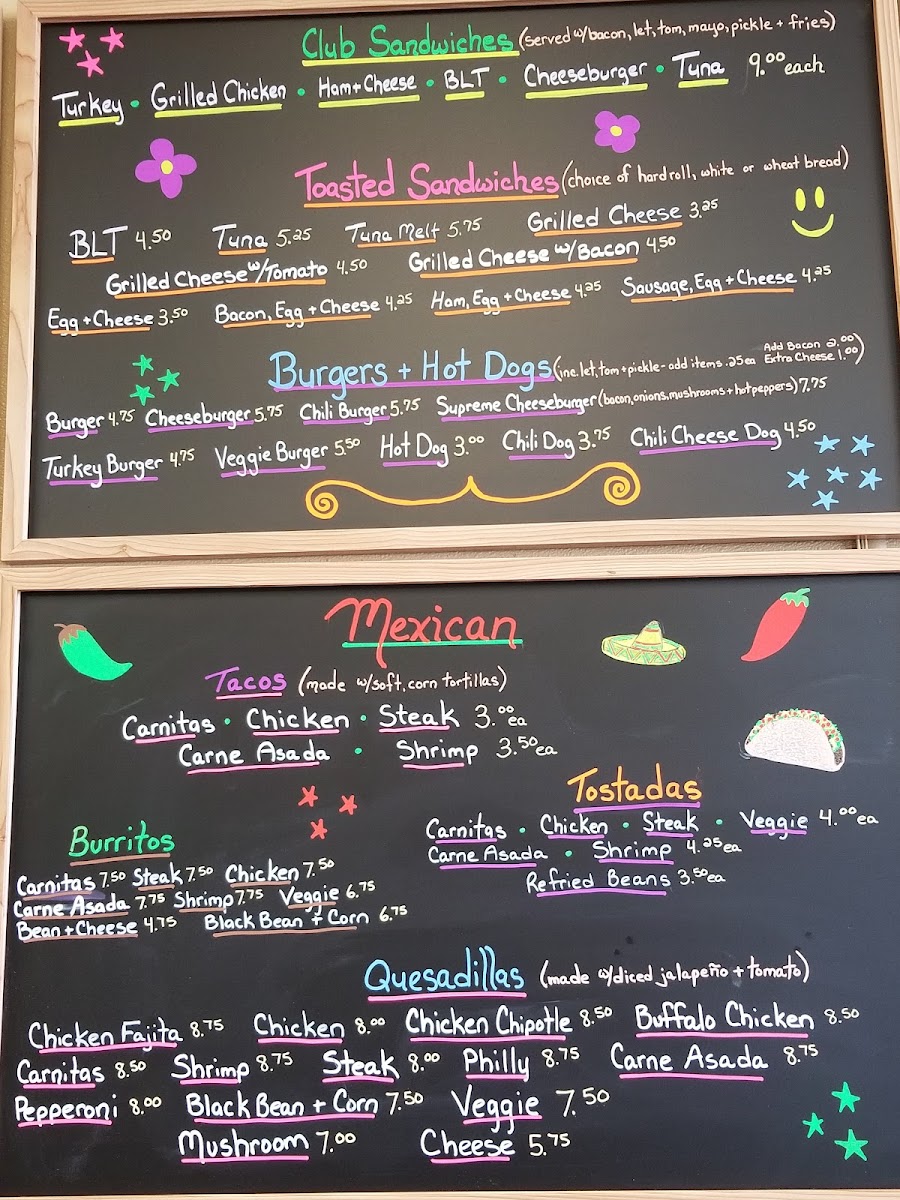 Club Sandwiches (served w/bacon, let, tom, mayo, pickle + fries)
Turkey • Grilled Chicken • Ham+Cheese • BLT • Cheeseburger • Tuna 9.00 each
Toasted Sandwiches (choice of hardroll, white or wheat bread)
BLT 4.50 Tuna 5.25 Tuna Melt 5.75 Grilled Cheese 3.25
Grilled Cheese w/Tomato 4.50 Grilled Cheese w/Bacon 4.50
Egg+Cheese 3.50 Bacon, Egg+Cheese 4.25 Ham, Egg+Cheese 4.25 Sausage, Egg+Cheese 4.25
Burgers + Hot Dogs (inc. let, tom + pickle - add items .25ea Add Bacon 2.00 Extra Cheese 1.00)
Burger 4.75 Cheeseburger 5.75 Chili Burger 5.75 Supreme Cheeseburger (bacon, onions, mushrooms + hot peppers) 7.75
Turkey Burger 4.75 Veggie Burger 5.50 Hot Dog 3.00 Chili Dog 3.75 Chili Cheese Dog 4.50
Mexican
Tacos (made w/soft, corn tortillas)
Carnitas • Chicken • Steak 3.00 ea
Carne Asada • Shrimp 3.50 ea
Tostadas
Carnitas • Chicken • Steak • Veggie 4.00 ea
Carne Asada • Shrimp 4.25 ea
Refried Beans 3.50 ea
Burritos
Carnitas 7.50 Steak 7.50 Chicken 7.50
Carne Asada 7.75 Shrimp 7.75 Veggie 6.75
Bean+Cheese 4.75 Black Bean + Corn 6.75
Quesadillas (made w/diced jalapeño + tomato)
Chicken Fajita 8.75 Chicken 8.00 Chicken Chipotle 8.50 Buffalo Chicken 8.50
Carnitas 8.50 Shrimp 8.75 Steak 8.00 Philly 8.75 Carne Asada 8.75
Pepperoni 8.00 Black Bean + Corn 7.50 Veggie 7.50
Mushroom 7.00 Cheese 5.75